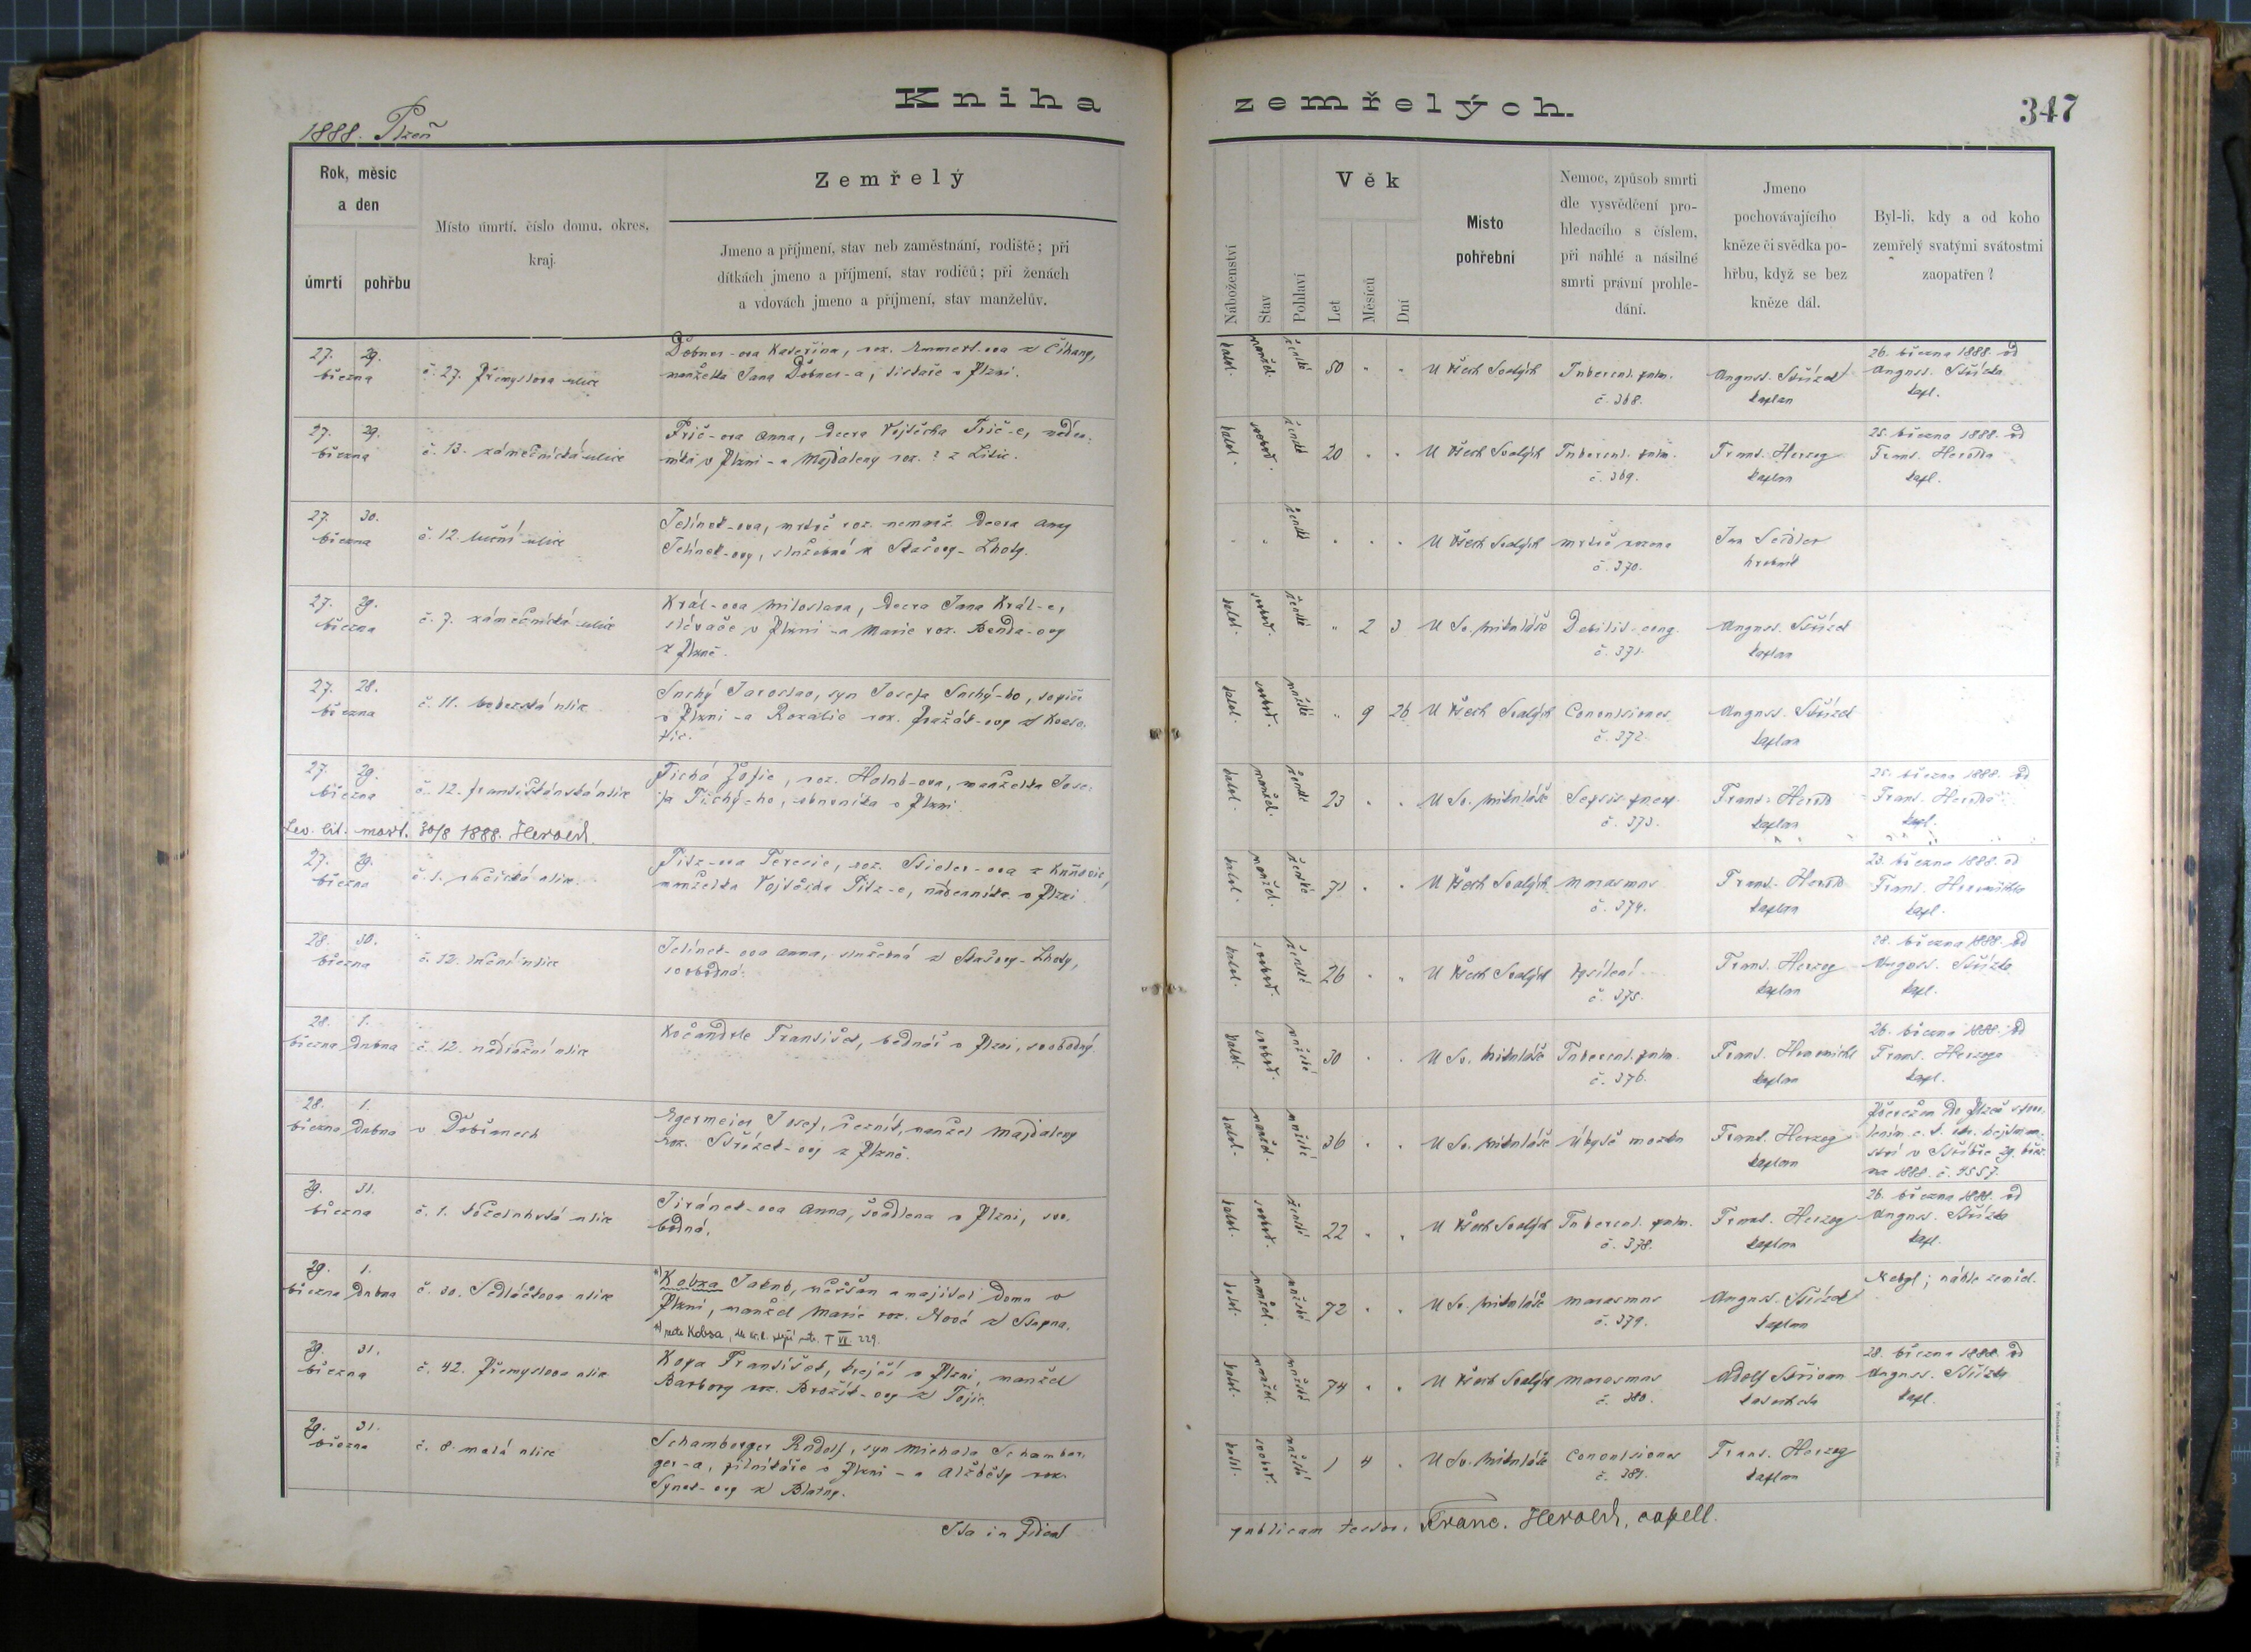 Kniha zemřelých.
347
1888. Plzeň
Rok, měsíc
a den
úmrtí pohřbu
Místo úmrtí, číslo domu, okres,
kraj.
Zemřelý
Jmeno a příjmení, stav neb zaměstnání, rodiště; při
dítkách jmeno a příjmení, stav rodičů; při ženách
a vdovách jmeno a příjmení, stav manželův.
Náboženství
Stav
Pohlaví
Věk
Let
Měsíců
Dní
Místo
pohřební
Nemoc, způsob smrti
dle vysvědčení pro-
hledacího s číslem,
při náhlé a násilné
smrti právní prohle-
dání.
Jmeno
pochovávajícího
kněze či svědka po-
hřbu, když se bez
kněze dál.
Byl-li, kdy a od koho
zemřelý svatými svátostmi
zaopatřen?
27. 29.
března
č. 27. Přemyslova ulice
Döbner-ova Kateřina, roz. Emmert-ova z Číhany,
manželka Jana Döbner-a, listaře v Plzni.
katol. manžel. ženské 50 " "
U Všech Svatých
Tubercul. pulm.
č. 368.
August. Střízek
kaplan
26. března 1888. od
August. Střízka
kapl.
27. 29.
března
č. 13. zámečnická ulice
Frič-ova Anna, dcera Vojtěcha Frič-e, náden-
níka v Plzni - a Majdaleny roz. ? z Litic.
katol. svobod. ženské 20 " "
U Všech Svatých
Tubercul. pulm.
č. 369.
Frant. Herzog
kaplan
25. března 1888. od
Frant. Herolda
kapl.
27. 30.
března
č. 12. luční ulice
Jelínek-ova, mrtvě roz. nemanž. dcera Anny
Jelínek-ovy, služebné z Stařovy-Lhoty.
ženské
U Všech Svatých
mrtvě rozena
č. 370.
Jan Seidler
hrobník
27. 29.
března
č. 7. zámečnická ulice
Král-ova Miloslava, dcera Jana Král-e,
slévače v Plzni - a Marie roz. Benda-ovy
z Plzně.
katol. svobod. ženské " 2 3
U Sv. Mikuláše
Debilit. cong.
č. 371.
August. Střízek
kaplan
27. 28.
března
č. 11. koperská ulice
Suchý Jaroslav, syn Josefa Suchý-ho, topiče
v Plzni - a Rozalie roz. Pražák-ovy z Kraso-
tic.
katol. svobod. mužské " 9 26
U Všech Svatých
Convulsiones
č. 372.
August. Střízek
kaplan
27. 29.
března
č. 12. františkánská ulice
Tichá Žofie, roz. Holub-ova, manželka Jose-
fa Tichý-ho, obuvníka v Plzni.
Lev. lit. mort. 30/8 1888. Herold.
katol. manžel. ženské 23 " "
U Sv. Mikuláše
Sepsis puerp.
č. 373.
Frant. Herold
kaplan
25. března 1888. od
Frant. Herolda
kapl.
27. 29.
března
Pitz-ova Terezie, roz. Stieler-ova z Knínovic,
manželka Vojtěcha Pitz-e, nádenníka v Plzni.
katol. manžel. ženské 71 " "
U Všech Svatých
Marasmus
č. 374.
Frant. Herold
kaplan
23. března 1888. od
Frant. Hranmichla
kapl.
28. 30.
března
č. 12. luční ulice
Jelínek-ova Anna, služebná z Stařovy-Lhoty,
svobodná.
katol. svobod. ženské 26 " "
U Všech Svatých
Vysílení
č. 375.
Frant. Herzog
kaplan
28. března 1888. od
August. Střízka
kapl.
28. 1.
března dubna
č. 12. nádražní ulice
Kočandrle František, bednář v Plzni, svobodný.
katol. svobod. mužské 30 " "
U Sv. Mikuláše
Tubercul. pulm.
č. 376.
kaplan
26. března 1888. od
Frant. Herzoga
kapl.
28. 1.
března dubna
v Dobřanech
Egermeier Josef, řezník, manžel Majdaleny
roz. Střízek-ovy z Plzně.
katol. manžel. mužské 36 " "
U Sv. Mikuláše
Úbytě mozku
Frant. Herzog
kaplan
Převežen do Plzně svo-
lením c. k. okr. hejtman-
ství v Stříbře 29. břez-
na 1888. č. 4557.
29. 31.
března
Jiránek-ova Anna, švadlena v Plzni, svo-
bodná.
katol. svobod. ženské 22 " "
U Všech Svatých
Tubercul. pulm.
č. 378.
Frant. Herzog
kaplan
26. března 1888. od
August. Střízka
kapl.
29. 1.
března dubna
č. 30. Sedláčkova ulice
*) Kobza Jakub, měšťan a majitel domu v
Plzni, manžel Marie roz. Nové z Stupna.
*) recte Kobsa, T VI 229.
katol. manžel. mužské 72 " "
U Sv. Mikuláše
Marasmus
č. 379.
August. Střízek
kaplan
Nebyl; náhle zemřel.
29. 31.
března
č. 42. Přemyslova ulice
Kopa František, krejčí v Plzni, manžel
Barbory roz. Brožík-ovy z Tojic.
katol. manžel. mužské 74 " "
U Všech Svatých
Marasmus
č. 380.
Adolf
katecheta
28. března 1888. od
August. Střízka
kapl.
29. 31.
března
č. 8. malá ulice
Schamberger Rudolf, syn Michala Schamber-
ger-a, pilnikáře v Plzni - a Alžběty roz.
Synek-ovy z Blatny.
katol. svobod. mužské 1 4 "
U Sv. Mikuláše
Convulsiones
č. 381.
Frant. Herzog
kaplan
Ita in fidem
publicam testor, Franc. Herold, capell.